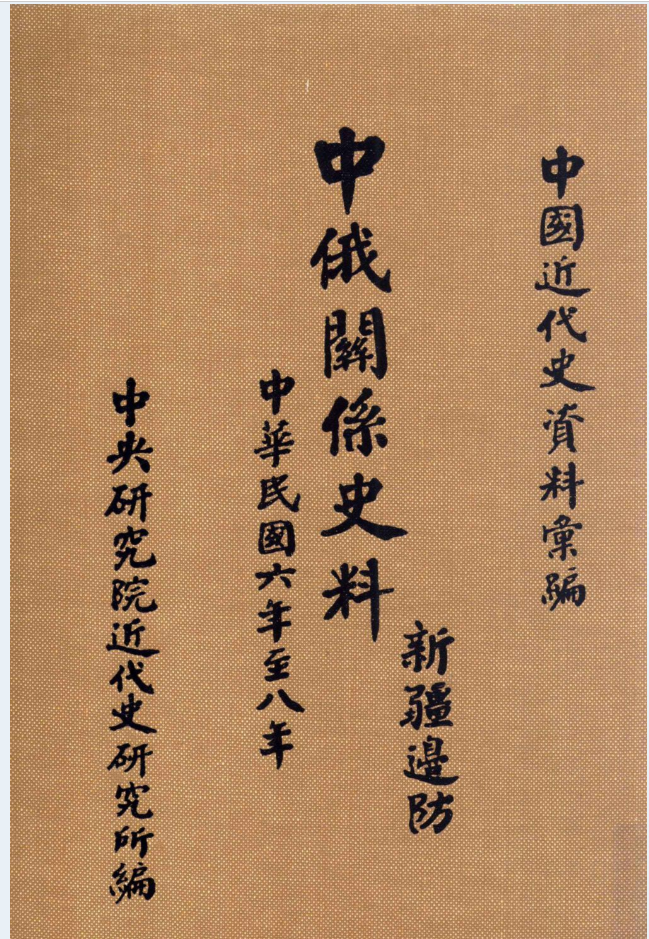 中國近代史資料彙編
新疆邊防
中俄關係史料
中華民國六年至八年
中央研究院近代史研究所編